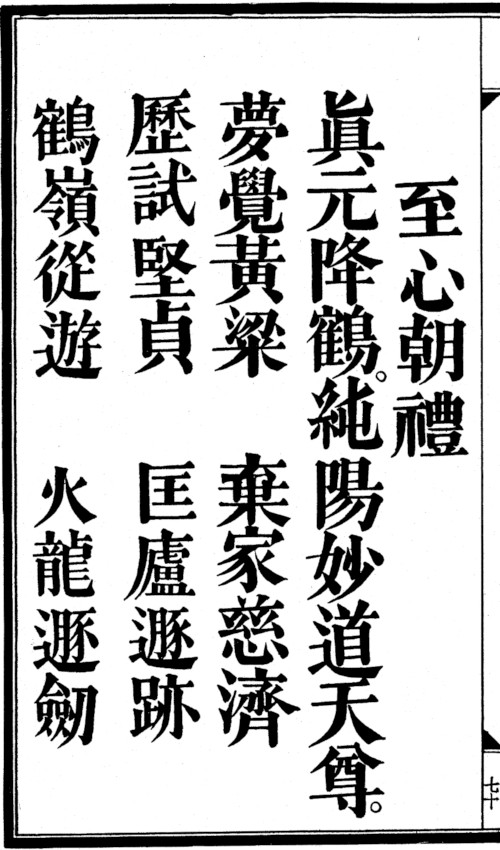 至心朝禮
眞元降鶴。純陽妙道天尊。
夢覺黃粱　棄家慈濟
歷試堅貞　匡廬遯跡
鶴嶺從遊　火龍遯劒
七十